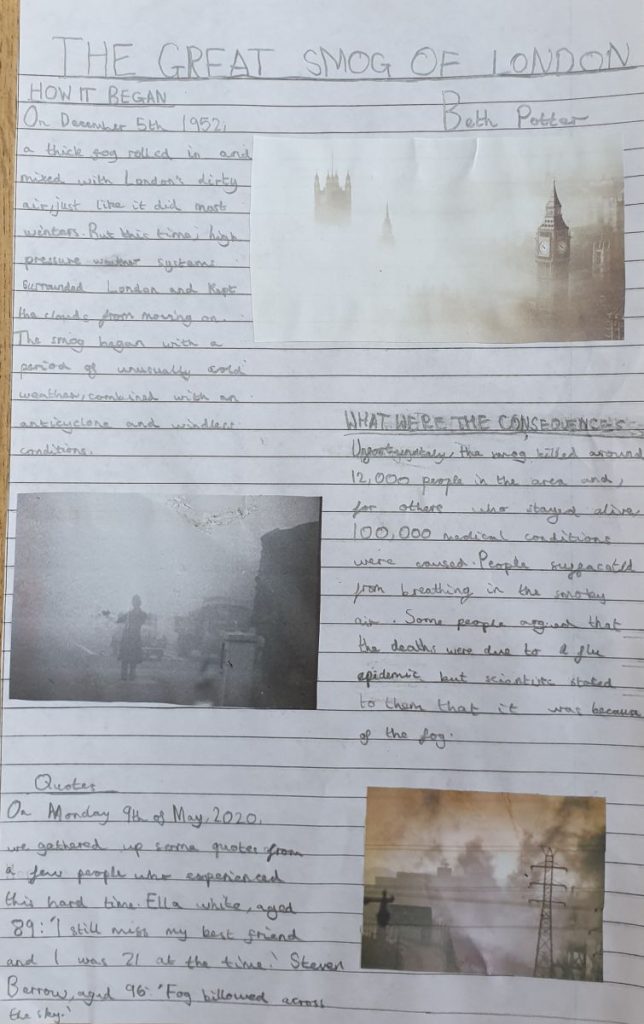 THE GREAT SMOG OF LONDON
HOW IT BEGAN
Beth Potter
On December 5th 1952,
a thick fog rolled in and
mixed with London's dirty
air, just like it did most
winters. But this time, high
pressure weather systems
surrounded London and kept
the clouds from moving on.
The smog began with a
period of unusually cold
weather, combined with an
anticyclone and windless
conditions.
WHAT WERE THE CONSEQUENCES
Unfortunately, the smog killed around
12,000 people in the area and,
for others who stayed alive
100,000 medical conditions
were caused. People suffocated
from breathing in the smoky
air. Some people argued that
the deaths were due to a flu
epidemic but scientists stated
to them that it was because
of the fog.
Quotes
On Monday 9th of May, 2020,
we gathered up some quotes from
a few people who experienced
this hard time. Ella white, aged
89: 'I still miss my best friend
and I was 21 at the time.' Steven
Barrow, aged 96: 'Fog billowed across
the sky.'